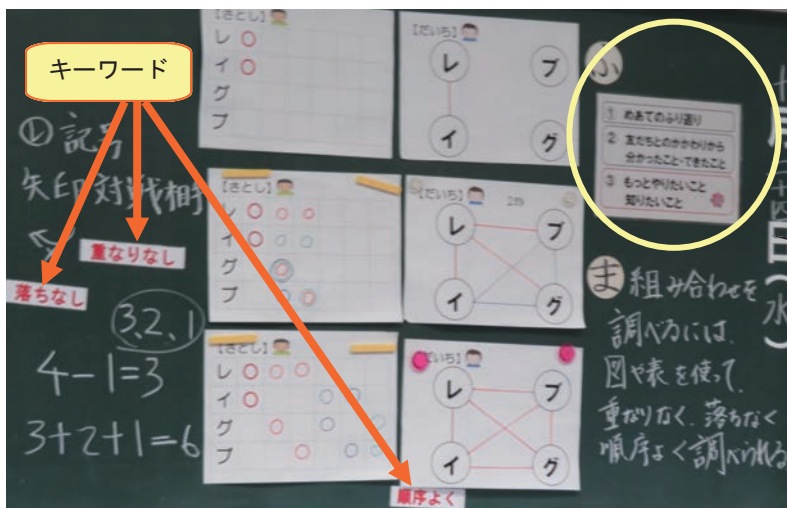 キーワード
① 記号
矢印対戦相手
重なりなし
落ちなし
3、2、1
4-1=3
3+2+1=6
【さとし】
レ
イ
グ
ブ
【だいち】
レ ブ
イ グ
【さとし】
レ
イ
グ
ブ
【だいち】
レ ブ
イ グ
【さとし】
レ
イ
グ
ブ
【だいち】
レ ブ
イ グ
順序よく
ふ
① めあてのふり返り
② 友だちとのかかわりから
分かったこと・できたこと
③ もっとやりたいこと
知りたいこと
ま 組み合わせを
調べるには、
図や表を使って、
重なりなく、落ちなく
順序よく調べられる
日(水)